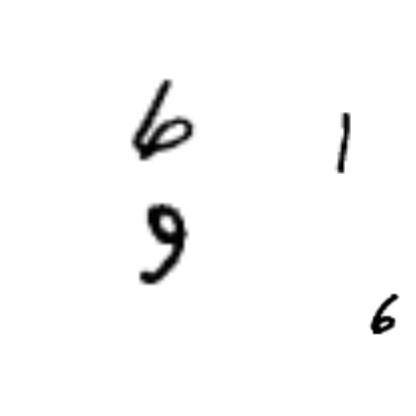 6 1
9
6